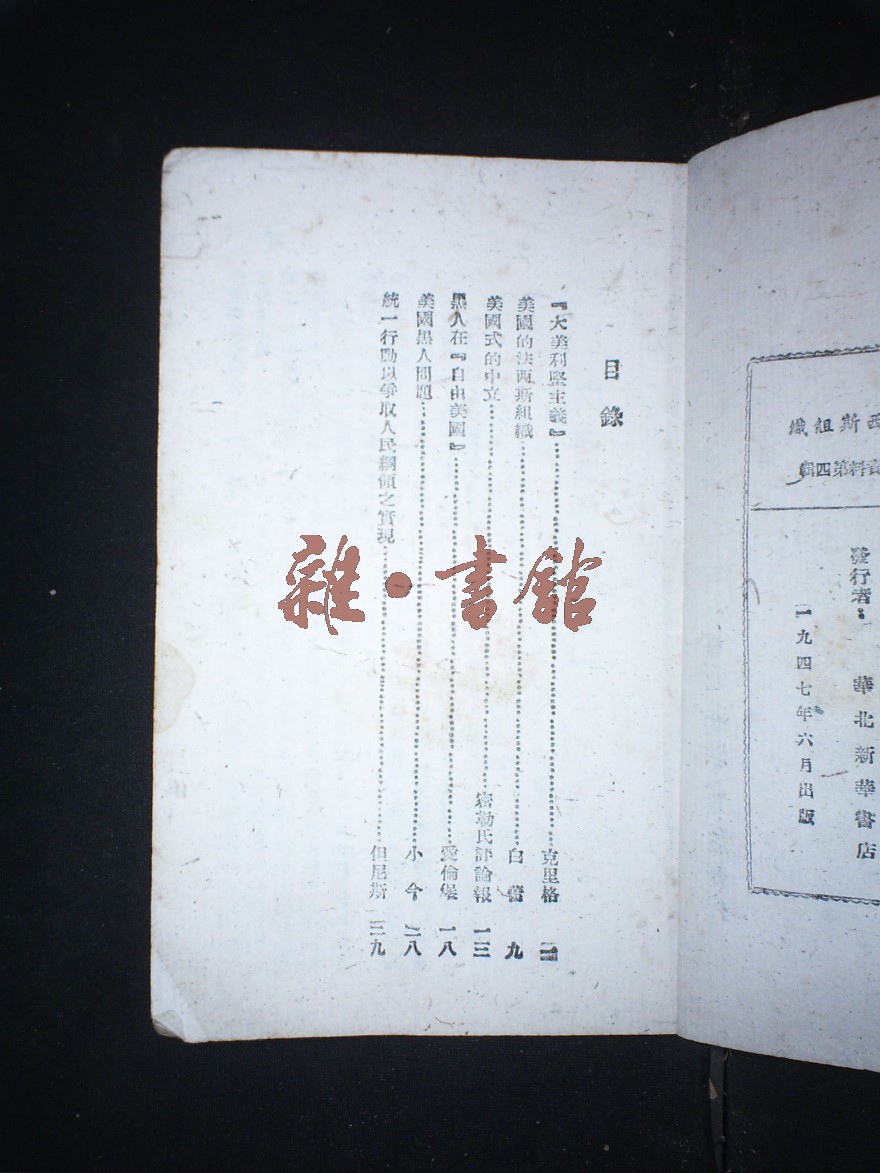 西斯組織
資料第四輯
發行者：
華北新華書店
一九四七年六月出版
目錄
『大美利堅主義』 克里格
美國的法西斯組織 白蕾 九
美國式的中立 密勒氏評論報 一三
黑人在『自由美國』 愛倫堡 一八
美國黑人問題 小今 二八
統一行動以爭取人民綱領之實現 但尼斯 三九
雜·書館